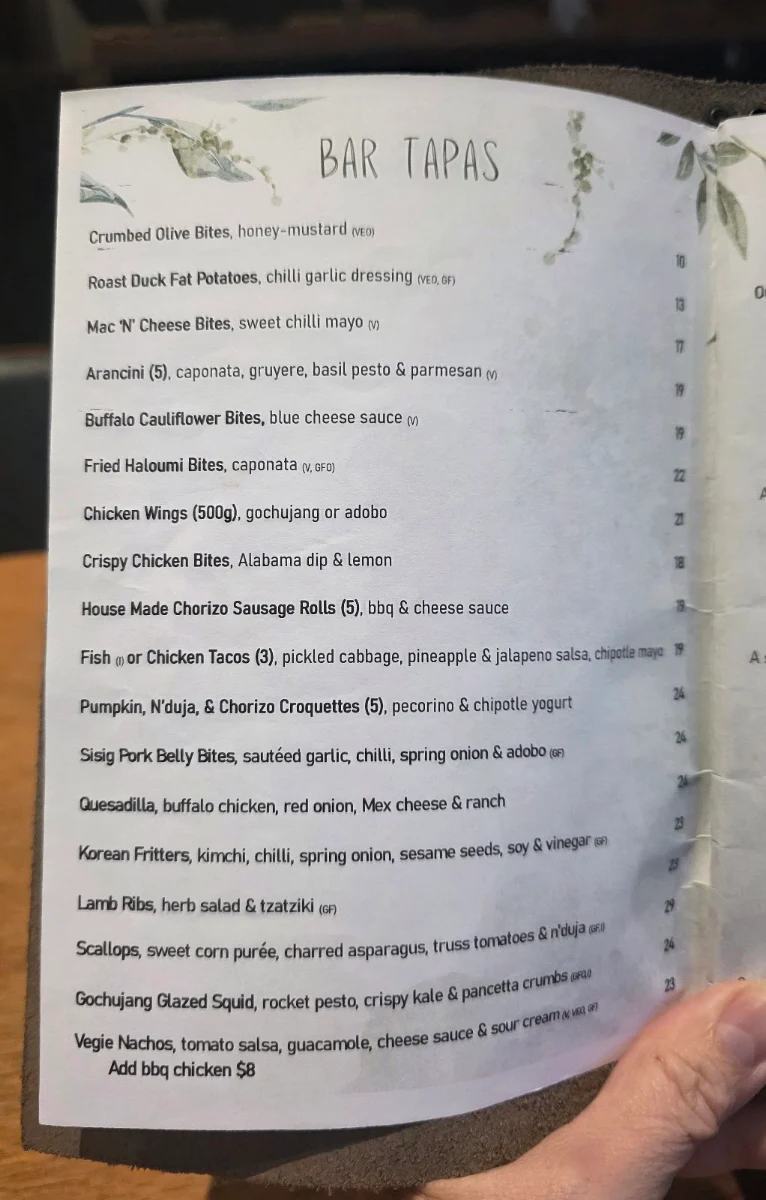 BAR TAPAS
Crumbed Olive Bites, honey-mustard (VEO) 10
Roast Duck Fat Potatoes, chilli garlic dressing (VEO, GF) 13
Mac 'N' Cheese Bites, sweet chilli mayo (V) 17
Arancini (5), caponata, gruyere, basil pesto & parmesan (V) 19
Buffalo Cauliflower Bites, blue cheese sauce (V) 19
Fried Haloumi Bites, caponata (V, GFO) 22
Chicken Wings (500g), gochujang or adobo 21
Crispy Chicken Bites, Alabama dip & lemon 18
House Made Chorizo Sausage Rolls (5), bbq & cheese sauce
Fish (I) or Chicken Tacos (3), pickled cabbage, pineapple & jalapeno salsa, chipotle mayo 19
Pumpkin, N'duja, & Chorizo Croquettes (5), pecorino & chipotle yogurt 24
Sisig Pork Belly Bites, sautéed garlic, chilli, spring onion & adobo (GF) 26
Quesadilla, buffalo chicken, red onion, Mex cheese & ranch
Korean Fritters, kimchi, chilli, spring onion, sesame seeds, soy & vinegar (GF) 23
Lamb Ribs, herb salad & tzatziki (GF)
Scallops, sweet corn purée, charred asparagus, truss tomatoes & n'duja 29
Gochujang Glazed Squid, rocket pesto, crispy kale & pancetta crumbs 24
Vegie Nachos, tomato salsa, guacamole, cheese sauce & sour cream (V, VEO, GF) 23
Add bbq chicken $8